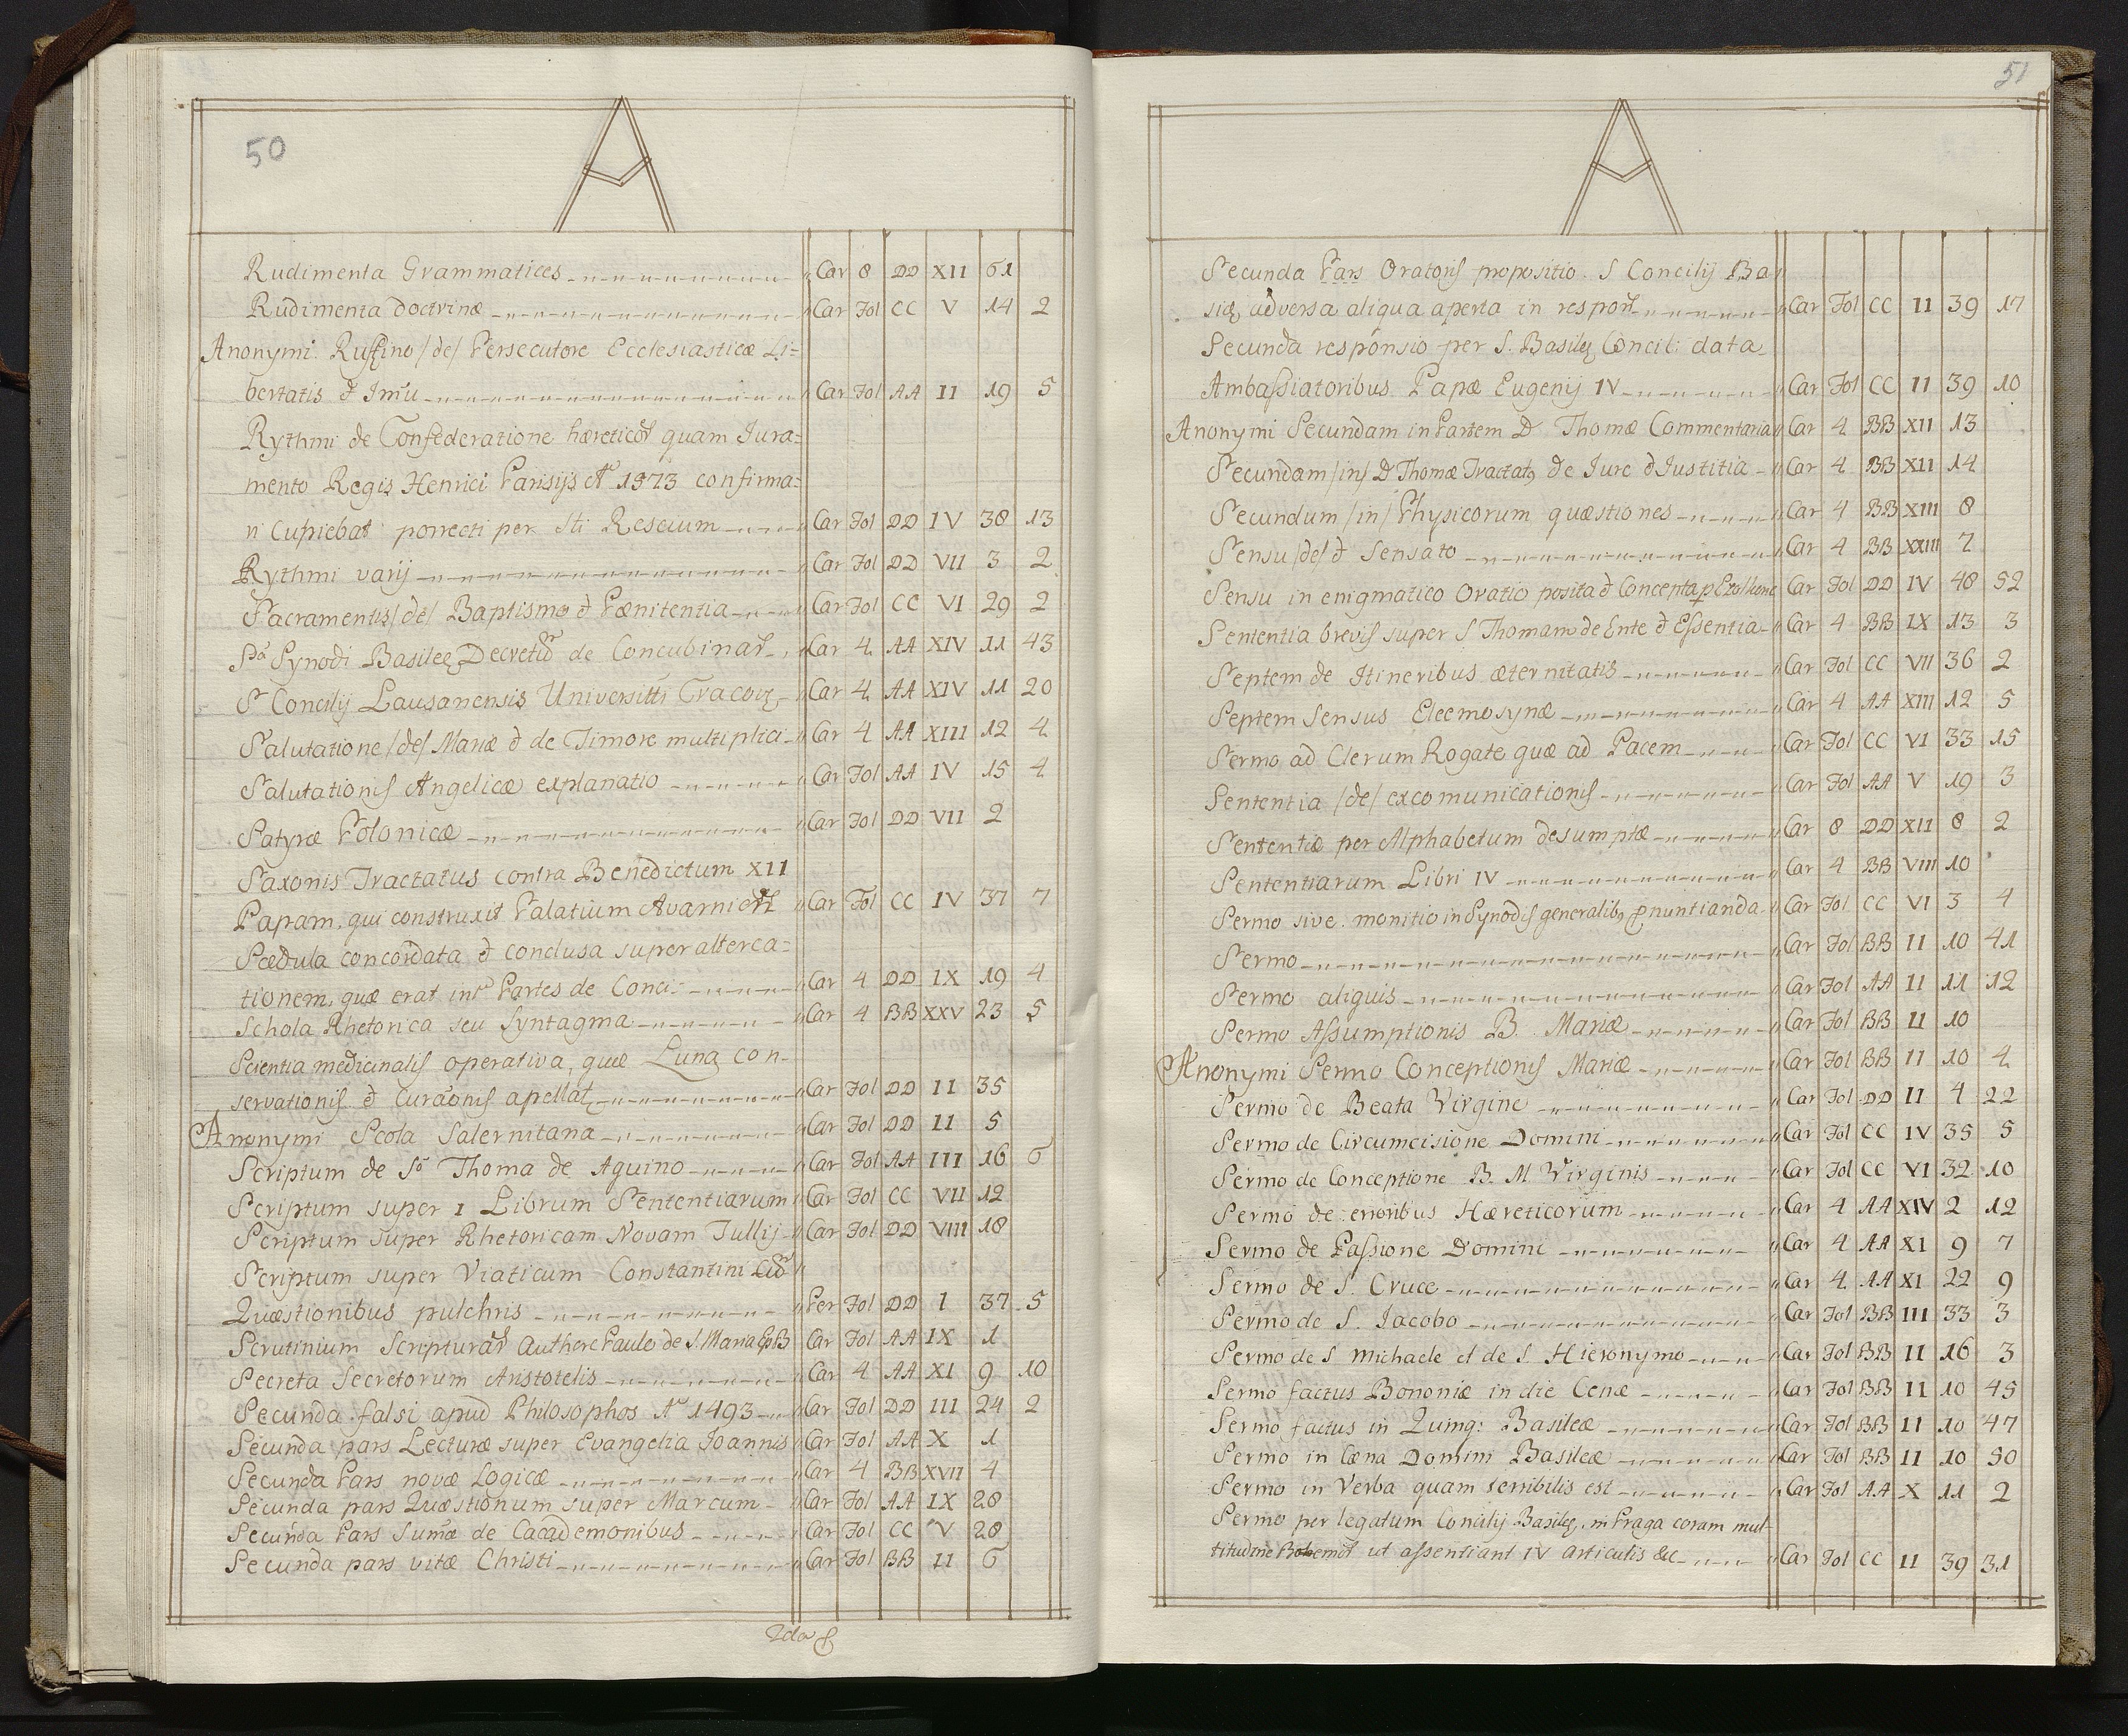 50
A
Rudimenta Grammatices Car 8 DD XII 61
Rudimenta doctrinæ Car Fol CC V 14 2
Anonymi Ruffino /de/ Persecutore Ecclesiasticæ Li=
bertatis & Imu Car Fol AA II 19 5
Rythmi de Confederatione hæretico quam Jura=
mento Regis Henrici Parisijs Aº 1573 confirma=
n Cupiebat porrecti per Sti Rescium Car Fol DD IV 38 13
Rythmi varij Car Fol DD VII 3 2
Sacramentis /de/ Baptismo & Pænitentia Car Fol CC VI 29 2
Synodi Basileę de Concubinar Car 4 AA XIV 11 43
Sº Concilij Lausanensis Cracov Car 4 AA XIV 11 20
Salutatione /de/ Mariæ & de Timore multiplici Car 4 AA XIII 12 4
Salutationis Angelicæ explanatio Car Fol AA IV 15 4
Satyræ Polonicæ Car Fol DD VII 2
Saxonis Tractatus contra Benedictum XII
Papam, qui construxit Palatium Car Fol CC IV 37 7
Scædula concordata & conclusa super alterca=
tionem, quæ erat int Partes de Conci: Car 4 DD IX 19 4
Schola Rhetorica seu Syntagma Car 4 BB XXV 23 5
Scientia medicinalis operativa, quæ Luna con-
servationis & Curaonis apellat Car Fol DD II 35
Anonymi Scola Salernitana Car Fol DD II 5
Scriptum de Sº Thoma de Aquino Car Fol AA III 16 6
Scriptum super I Librum Sententiarum Car Fol CC VII 12
Scriptum super Rhetoricam Novam Tullij Car Fol DD VIII 18
Scriptum super Viaticum Constantini
Quæstionibus pulchris Per Fol DD I 37 5
Scrutinium Scriptura Authore Paulo de S. Maria Car Fol AA IX 1
Secreta Secretorum Aristotelis Car 4 AA XI 9 10
Secunda falsi apud Philosophos Aº 1493 Car Fol DD III 24 2
Secunda pars Lecturæ super Evangelia Joannis Car Fol AA X 1
Secunda Pars novæ Logicæ Car 4 BB XVII 4
Secunda pars Quæstionum super Marcum Car Fol AA IX 28
Secunda Pars Sumæ de Cacademonibus Car Fol CC V 28
Secunda pars vitæ Christi Car Fol BB II 6
51
A
Secunda Pars Oratoris propositio S Concilij Ba
sią adversa aliqua aperta in respon Car Fol CC II 39 17
Secunda responsio per S. Basileę Concil: data
Ambassiatoribus Papæ Eugenij IV Car Fol CC II 39 10
Anonymi Secundam in Partem D Thomæ Commentaria Car 4 BB XII 13
Secundam /in/ D Thomæ Tractat9 de Jure & Justitia Car 4 BB XII 14
Secundum /in/ Physicorum quæstiones Car 4 BB XIII 8
Sensu /de/ & Sensato Car 4 BB XXIII 7
Sensu in enigmatico Oratio posita & Concepta Car Fol DD IV 48 52
Sententia brevis super S Thomam de Ente & Essentia Car 4 BB IX 13 3
Septem de Itineribus æternitatis Car Fol CC VII 36 2
Septem Sensus Eleemosynæ Car 4 AA XIII 12 5
Sermo ad Clerum Rogate quæ ad Pacem Car Fol CC VI 33 15
Sententia /de/ excomunicationis Car Fol AA V 19 3
Sententiæ per Alphabetum desumptæ Car 8 DD XII 8 2
Sententiarum Libri IV Car 4 BB VIII 10
Sermo sive monitio in Synodis generalib9 pnuntianda Car Fol CC VI 3 4
Sermo Car Fol BB II 10 41
Sermo aliquis Car Fol AA II 11 12
Sermo Assumptionis B. Mariæ Car Fol BB II 10
Anonymi Sermo Conceptionis Mariæ Car Fol BB II 10 4
Sermo de Beata Virgine Car Fol DD II 4 22
Sermo de Circumcisione Domini Car Fol CC IV 35 5
Sermo de Conceptione B. M Virginis Car Fol CC VI 32 10
Sermo de erroribus Hæreticorum Car 4 AA XIV 2 12
Sermo de Passione Domini Car 4 AA XI 9 7
Sermo de S. Cruce Car 4 AA XI 22 9
Sermo de S. Jacobo Car Fol BB III 33 3
Sermo de S Michaele et de S. Hieronymo Car Fol BB II 16 3
Sermo factus Bononiæ in die Cenæ Car Fol BB II 10 45
Sermo factus in Quinq: Basileæ Car Fol BB II 10 47
Sermo in Cæna Domini Basileæ Car Fol BB II 10 50
Sermo in Verba quam terribilis est Car Fol AA X 11 2
Sermo per legatum Concilij Basileę in Praga coram mul-
titudine Bohemo ut assentiant IV articulis &c Car Fol CC II 39 31